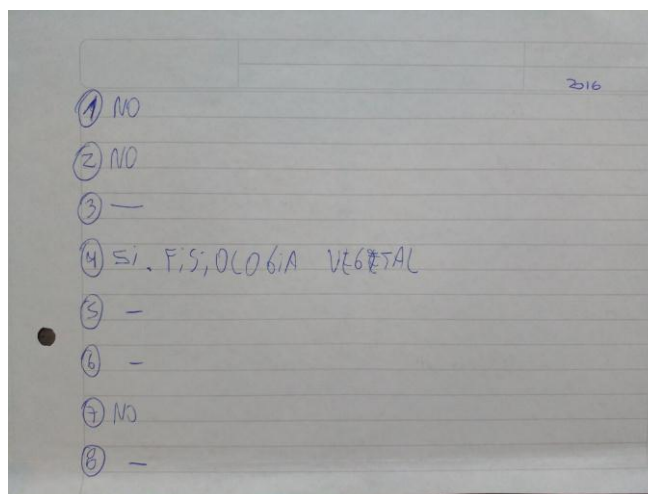 2016
① NO
② NO
③ —
④ Si. FiSiOLOGiA VEGETAL
⑤ -
⑥ -
⑦ NO
⑧ -